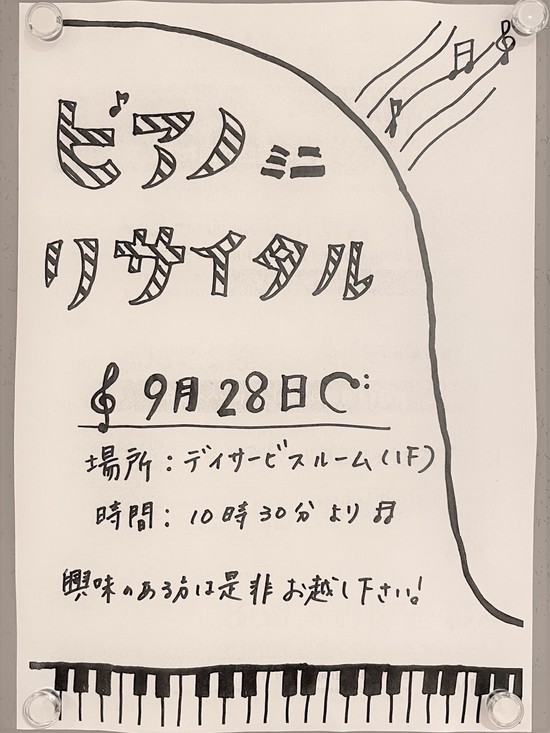 ピアノ ミニ
リサイタル
9月28日
場所：デイサービスルーム（1F）
時間：10時30分より
興味のある方は是非お越し下さい！